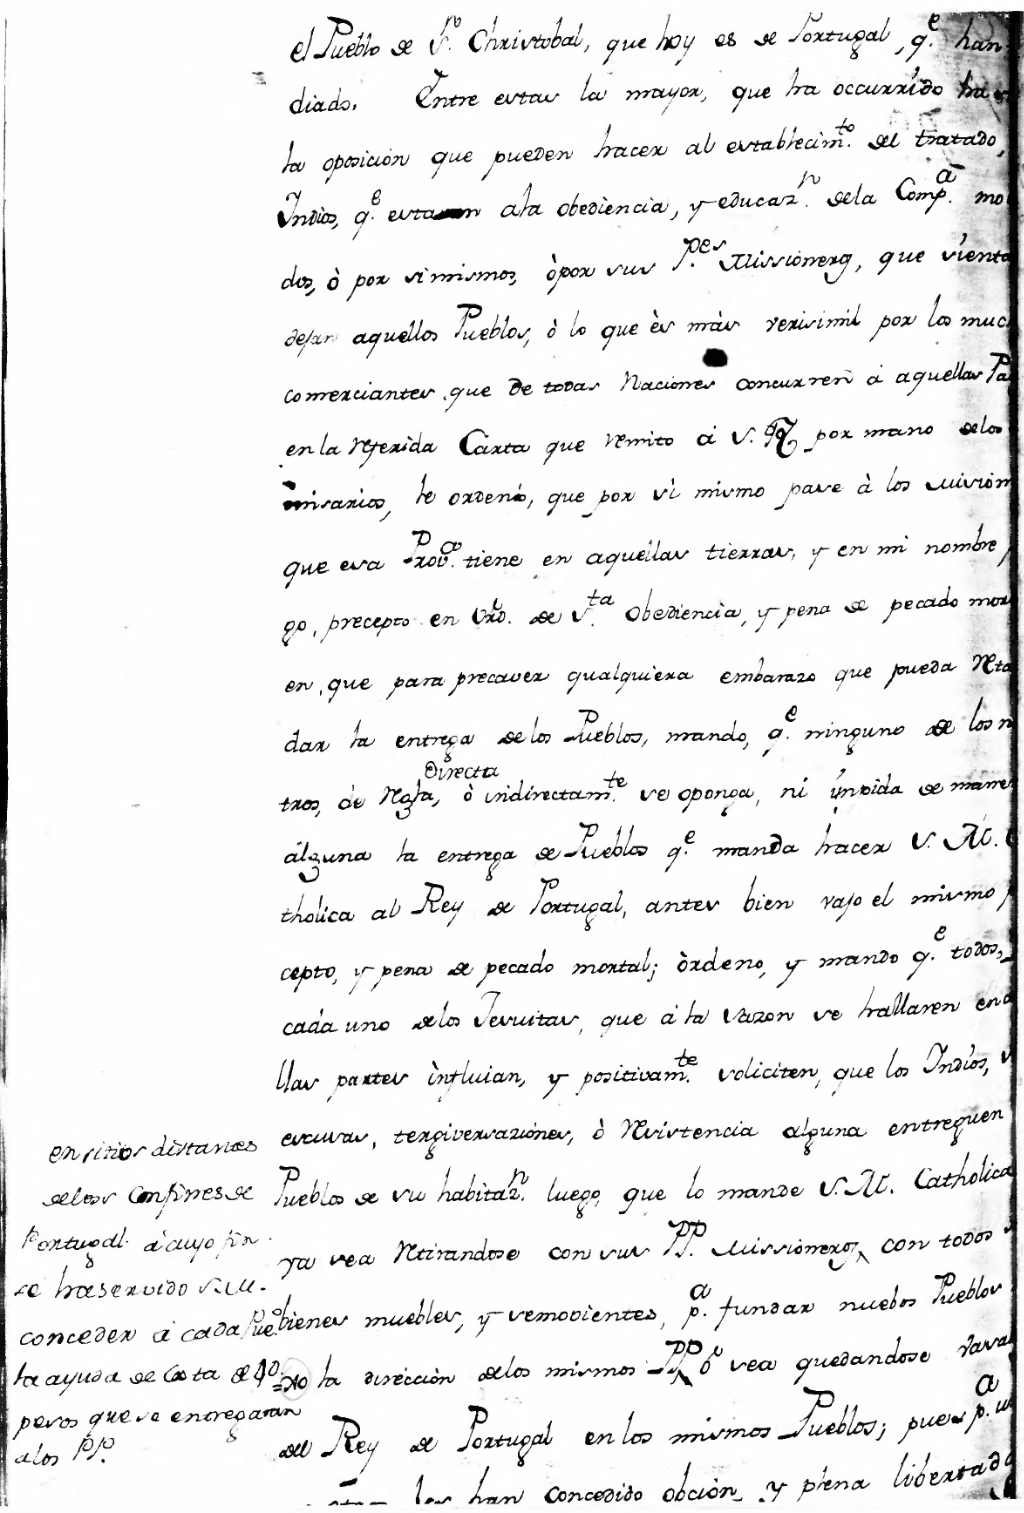 el Pueblo de Sn. Christobal, que hoy es de Portugal, q.e han
diado. Entre estas la mayor, que ha occurrido ha
la oposicion que pueden hacer al establecim.to del tratado,
Indios, q.e estavan ala obediencia, y educaz.n dela Comp.a mo
dos, ò por si mismos, òpor sus P.es Missioneros, que sienta
dejar aquellos Pueblos, ò lo que ès màs verisimil por los muc
comerciantes que de todas Naciones concurren á aquellas Pa
en la referida Carta que remito á V. R. por mano delos
misarios, le ordenò, que por si mismo pase à los mision
que esa Prov.a tiene en aquellas tierras, y en mi nombre
go, precepto en vrd. de S.ta Obediencia, y pena de pecado mor
en, que para precaver qualquiera embarazo que pueda reta
dar la entrega delos Pueblos, mando, q.e ninguno de los n
Directa
tros, de, ò indirectam.te se oponga, ni impida de mane
alguna la entrega de Pueblos q.e manda hacer S. M. C
tholica al Rey de Portugal, antes bien vajo el mismo p
cepto, y pena de pecado mortal; òrdeno, y mando q.e todos,
cada uno delos Jesuitas, que á la sazon se hallaren en a
llas partes influian, y positivam.te soliciten, que los Indios, s
escusas, tergiversaziones, ò resistencia alguna entreguen
Pueblos de su habitaz.n luego, que lo mande S. M. Catholica
ya sea retirandose con sus PP. Missioneros, con todos s
bienes muebles, y semovientes, p.a fundar nuebos Pueblos
la direcciòn delos mismos PP. ò sea quedandose vasal
del Rey de Portugal en los mismos Pueblos; pues p.a
les han concedido obciòn, y plena libertad
en sitios distantes
delos Confines de
Portugal. á cuyo fin
se ha servido S. M.
conceder á cada Pueo
la ayuda de Costa de
pesos que se entregaran
alos PP.